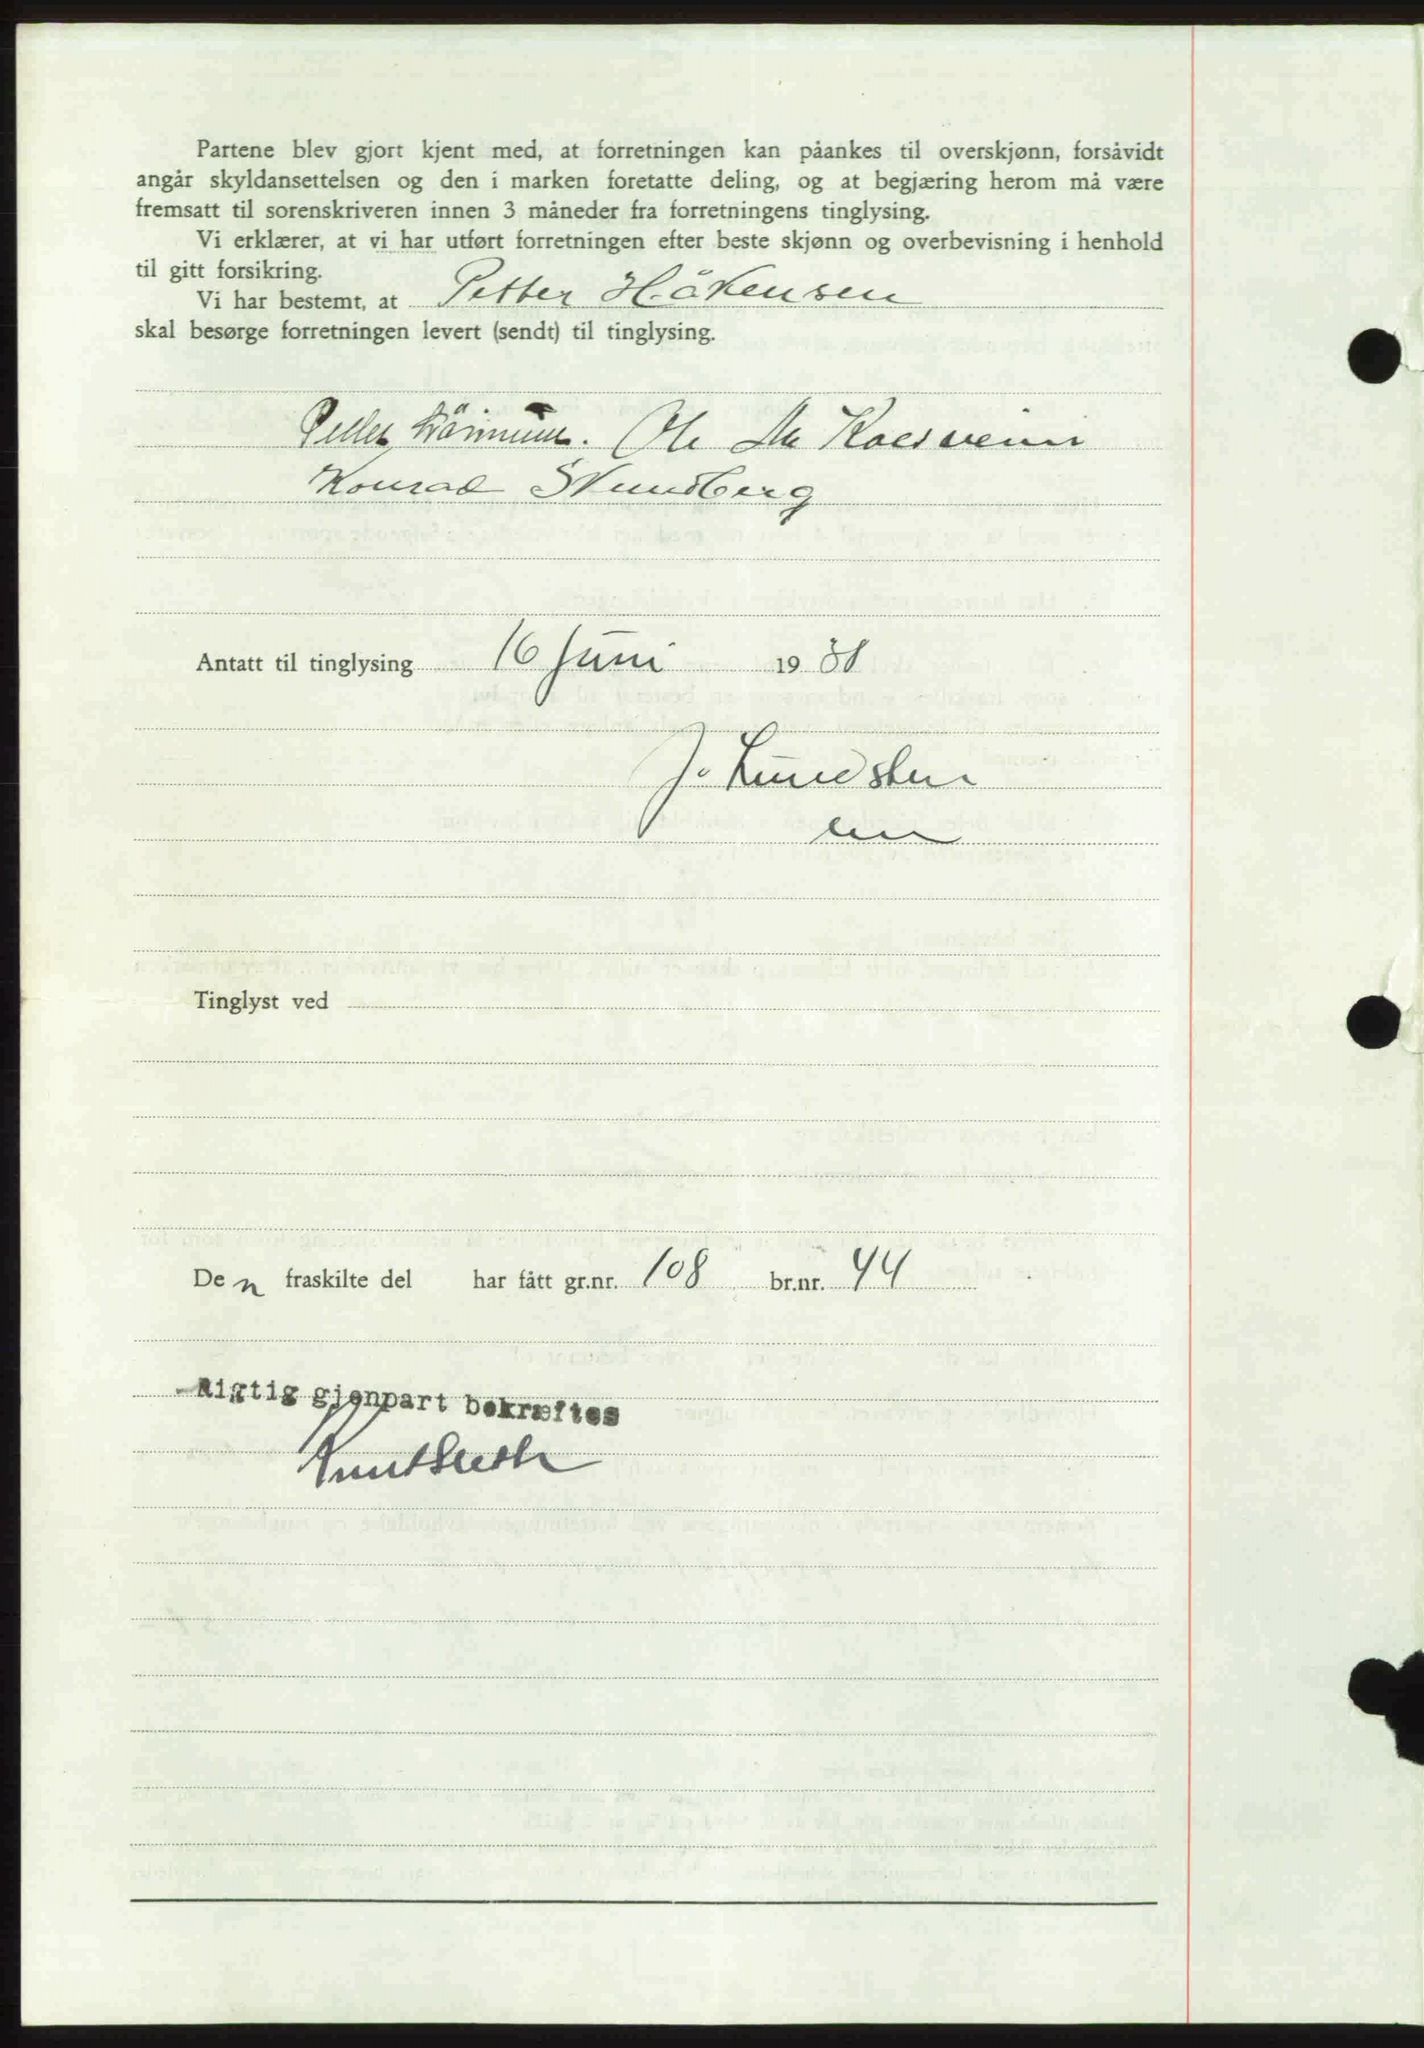 Partene blev gjort kjent med, at forretningen kan påankes til overskjønn, forsåvidt
angår skyldansettelsen og den i marken foretatte deling, og at begjæring herom må være
fremsatt til sorenskriveren innen 3 måneder fra forretningens tinglysing.
Vi erklærer, at vi har utført forretningen efter beste skjønn og overbevisning i henhold
til gitt forsikring.
Vi har bestemt, at Petter Håkensen
skal besørge forretningen levert (sendt) til tinglysing.
Ole
Konrad Skundberg
Antatt til tinglysing 16 Juni 1938
J. Lund
Tinglyst ved
Den fraskilte del har fått gr.nr. 108 br.nr. 44
Rigtig gjenpart bekræftes
Knut